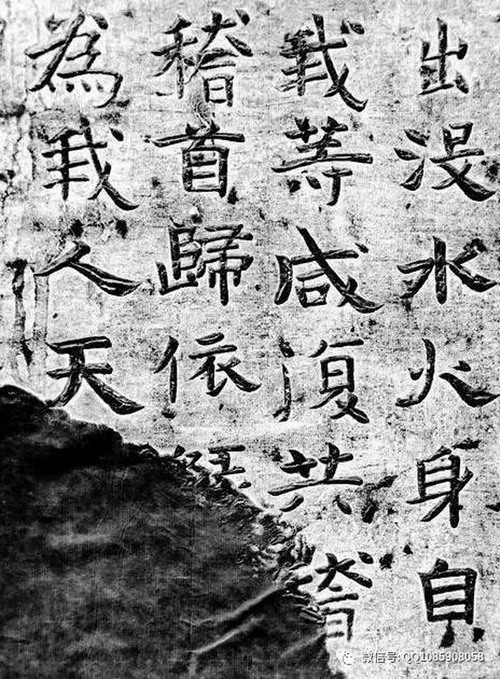 出没水火身自
我等咸復共稽
稽首歸依
為我人天
微信号: QQ1085908058